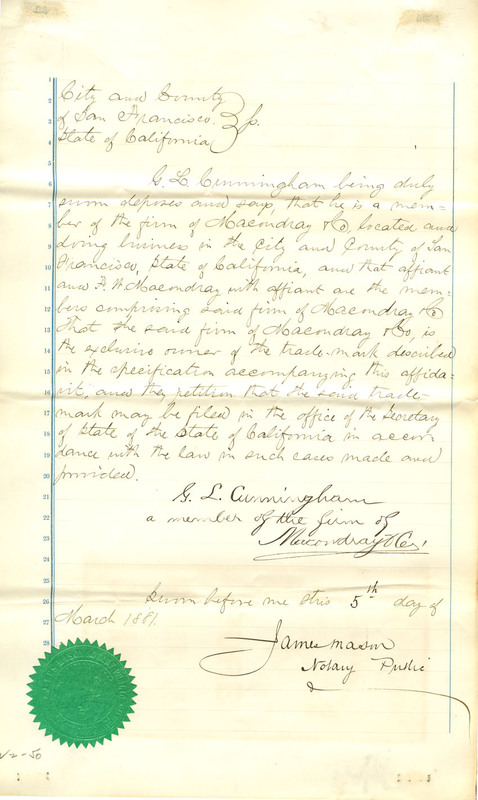 City and County
of San Francisco. } ss.
State of California
G. L. Cunningham being duly
sworn deposes and says, that he is a mem=
ber of the firm of Macondray & Co, located and
doing business in the City and County of San
Francisco, State of California, and that affiant
and F. W. Macondray with affiant are the mem=
bers comprising said firm of Macondray & Co
That the said firm of Macondray & Co, is
the exclusive owner of the trade-mark described
in the specification accompanying this affida-
vit, and they petition that the said trade-
mark may be filed in the office of the Secretary
of State of the State of California in accor
dance with the law in such cases made and
provided.
G. L. Cunningham
a member of the firm of
Macondray & Co.
Sworn before me this 5th day of
March 1881.
James Mason
Notary Public
1
2
3
4
5
6
7
8
9
10
11
12
13
14
15
16
17
18
19
20
21
22
23
24
25
26
27
28